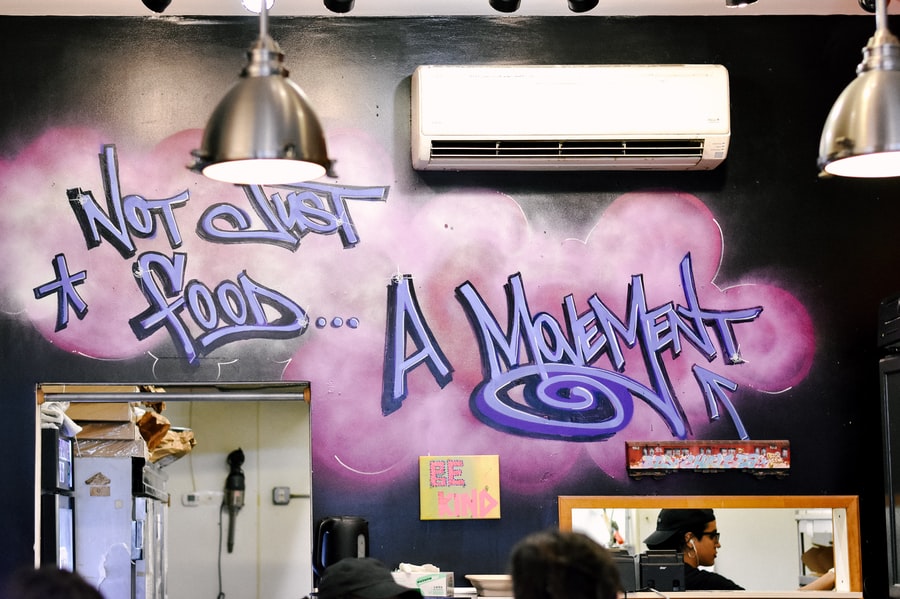 Not Just
Food... A Movement
BE
KIND